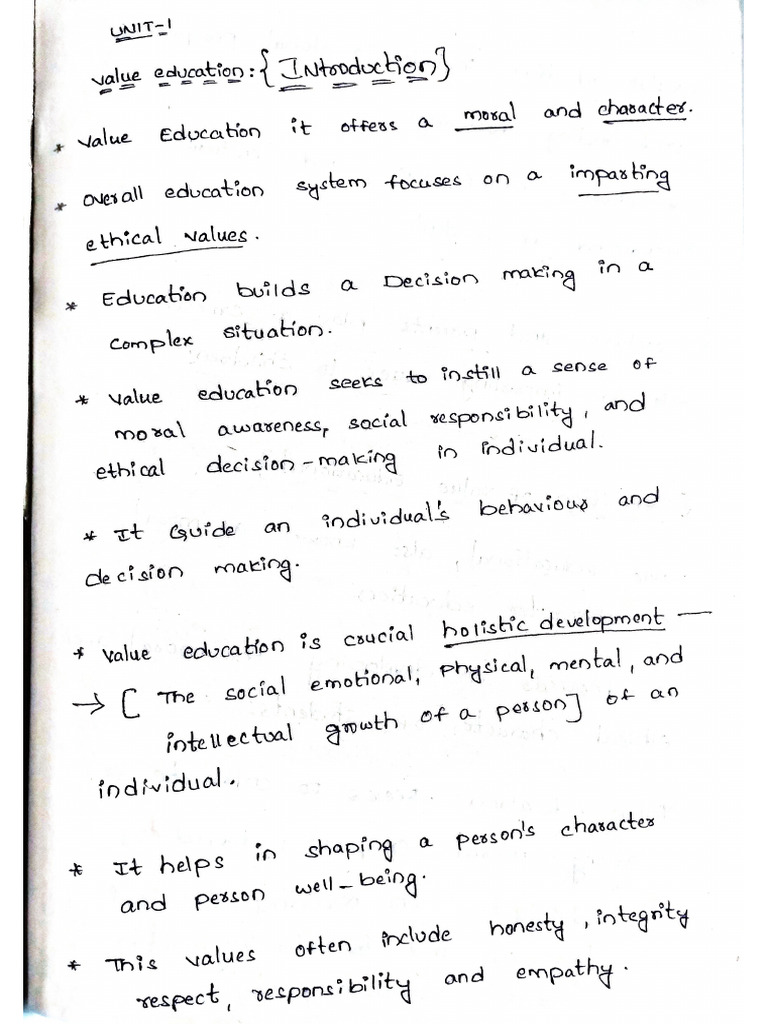 UNIT-1
Value education: {INtroduction}
* Value Education it offers a moral and character.
* Overall education system focuses on a imparting
ethical values.
* Education builds a Decision making in a
complex situation.
* Value education seeks to instill a sense of
moral awareness, social responsibility, and
ethical decision-making in individual.
* It Guide an individual's behaviour and
decision making.
* Value education is crucial holistic development —
→ [ The social emotional, physical, mental, and
intellectual growth of a person] of an
individual.
* It helps in shaping a person's character
and person well-being.
* This values often include honesty, integrity
respect, responsibility and empathy.